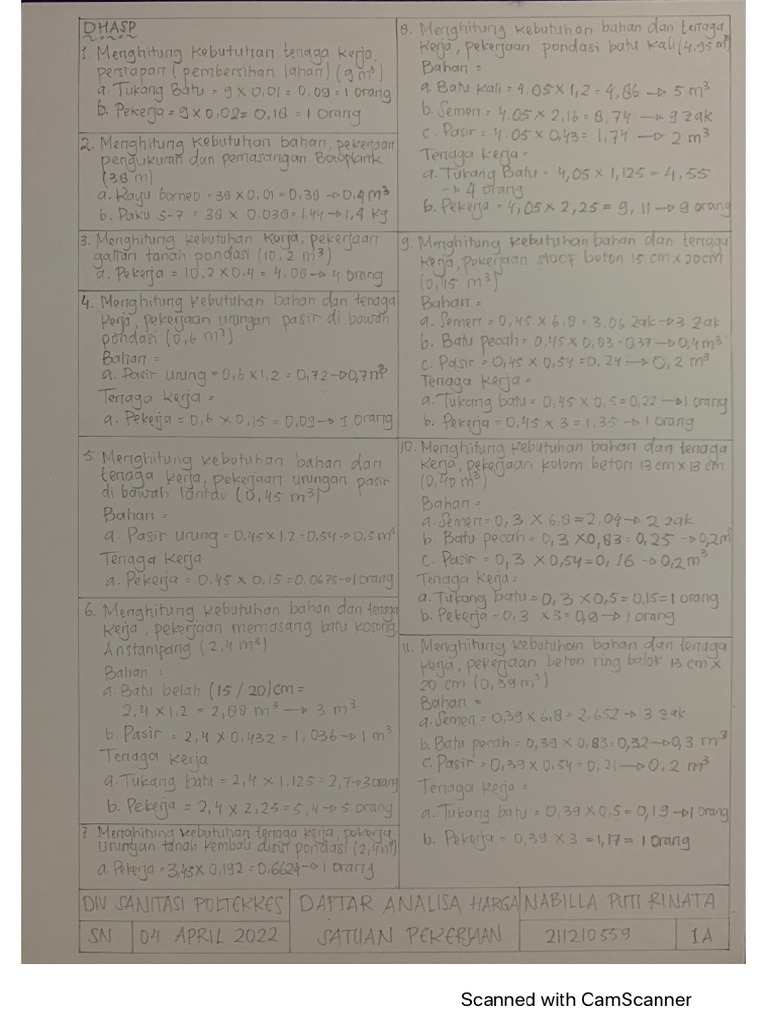 DHASP
1. Menghitung kebutuhan tenaga kerja,
persiapan (pembersihan lahan) (9 m³)
a. Tukang Batu = 9 x 0,01 = 0,09 = 1 orang
b. Pekerja = 9 x 0.02 = 0,18 = 1 orang
2. Menghitung kebutuhan bahan, pekerjaan
pengukuran dan pemasangan Bowplank
(38 m)
a. Kayu borneo = 38 x 0,01 = 0,38 → 0.4 m³
b. Paku 5-7 = 38 x 0.038 = 1.44 → 1,4 kg
3. Menghitung kebutuhan kerja, pekerjaan
galian tanah pondasi (10,2 m³)
a. Pekerja = 10,2 x 0.4 = 4,08 → 4 orang
4. Menghitung kebutuhan bahan dan tenaga
kerja, pekerjaan urungan pasir di bawah
pondasi (0,6 m³)
Bahan =
a. Pasir urung = 0,6 x 1,2 = 0,72 → 0,7 m³
Tenaga kerja =
a. Pekerja = 0.6 x 0,15 = 0,09 → 1 orang
5. Menghitung kebutuhan bahan dan
tenaga kerja, pekerjaan urungan pasir
di bawah lantai (0,45 m³)
Bahan =
a. Pasir urung = 0,45 x 1.2 = 0,54 → 0,5 m³
Tenaga kerja
a. Pekerja = 0,45 x 0,15 = 0,0675 → 1 orang
6. Menghitung kebutuhan bahan dan tenaga
kerja, pekerjaan memasang batu kosong
Anstampang (2,4 m³)
Bahan :
a. Batu belah (15/20) cm =
2,4 x 1,2 = 2,88 m³ → 3 m³
b. Pasir = 2,4 x 0,432 = 1,036 → 1 m³
Tenaga kerja
a. Tukang batu = 2,4 x 1,125 = 2,7 → 3 orang
b. Pekerja = 2,4 x 2,25 = 5,4 → 5 orang
7. Menghitung kebutuhan tenaga kerja, pekerja
urungan tanah kembali dinsi pondasi (2,4 m³)
a. Pekerja = 3,45 x 0,192 = 0.6624 → 1 orang
8. Menghitung kebutuhan bahan dan tenaga
kerja, pekerjaan pondasi batu kali (4.95 m³)
Bahan =
a. Batu kali = 4.05 x 1,2 = 4,86 → 5 m³
b. Semen = 4.05 x 2,16 = 8,74 → 9 zak
c. Pasir = 4.05 x 0,43 = 1,74 → 2 m³
Tenaga kerja =
a. Tukang Batu = 4,05 x 1,125 = 4,55
→ 4 orang
b. Pekerja = 4,05 x 2,25 = 9,11 → 9 orang
9. Menghitung kebutuhan bahan dan tenaga
kerja, pekerjaan sloof beton 15 cm x 20 cm
(0,45 m³)
Bahan =
a. Semen = 0,45 x 6,8 = 3.06 zak → 3 zak
b. Batu pecah = 0,45 x 0,83 = 0,37 → 0,4 m³
c. Pasir = 0,45 x 0,54 = 0,24 → 0,2 m³
Tenaga kerja =
a. Tukang batu = 0,45 x 0,5 = 0,22 → 1 orang
b. Pekerja = 0,45 x 3 = 1,35 → 1 orang
10. Menghitung kebutuhan bahan dan tenaga
kerja, pekerjaan kolom beton 13 cm x 13 cm
(0,40 m³)
Bahan =
a. Semen = 0,3 x 6,8 = 2.04 → 2 zak
b. Batu pecah = 0,3 x 0,83 = 0,25 → 0,2 m³
c. Pasir = 0,3 x 0,54 = 0,16 → 0,2 m³
Tenaga kerja =
a. Tukang batu = 0,3 x 0,5 = 0,15 = 1 orang
b. Pekerja = 0,3 x 3 = 0,9 → 1 orang
11. Menghitung kebutuhan bahan dan tenaga
kerja, pekerjaan beton ring balok 13 cm x
20 cm (0,39 m³)
Bahan =
a. Semen = 0,39 x 6,8 = 2,652 → 3 zak
b. Batu pecah = 0,39 x 0,83 = 0,32 → 0,3 m³
c. Pasir = 0,39 x 0.54 = 0,21 → 0,2 m³
Tenaga kerja =
a. Tukang batu = 0,39 x 0,5 = 0,19 → 1 orang
b. Pekerja = 0,39 x 3 = 1,17 = 1 orang
DIV SANITASI POLTEKKES
SN 04 APRIL 2022
DAFTAR ANALISA HARGA
SATUAN PEKERJAAN
NABILLA PUTI RINATA
211210559 1A
Scanned with CamScanner